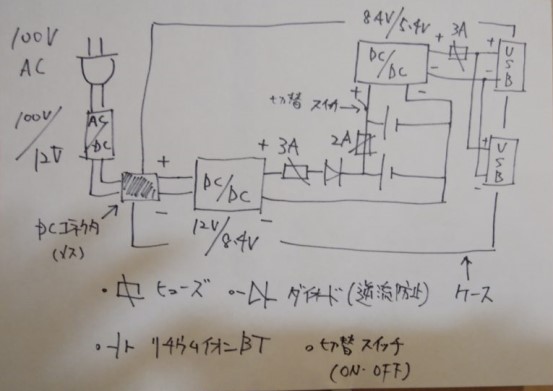 100V
AC
100V/12V
AC/DC
DCコネクタ
(メス)
+
-
DC/DC
12V/8.4V
+
-
3A
2A
切替スイッチ
8.4V/5.4V
DC/DC
+
-
+
-
3A
+
-
USB
+
-
USB
ケース
・ヒューズ
・ダイオード(逆流防止)
・リチウムイオンBT
・切替スイッチ
(ON・OFF)